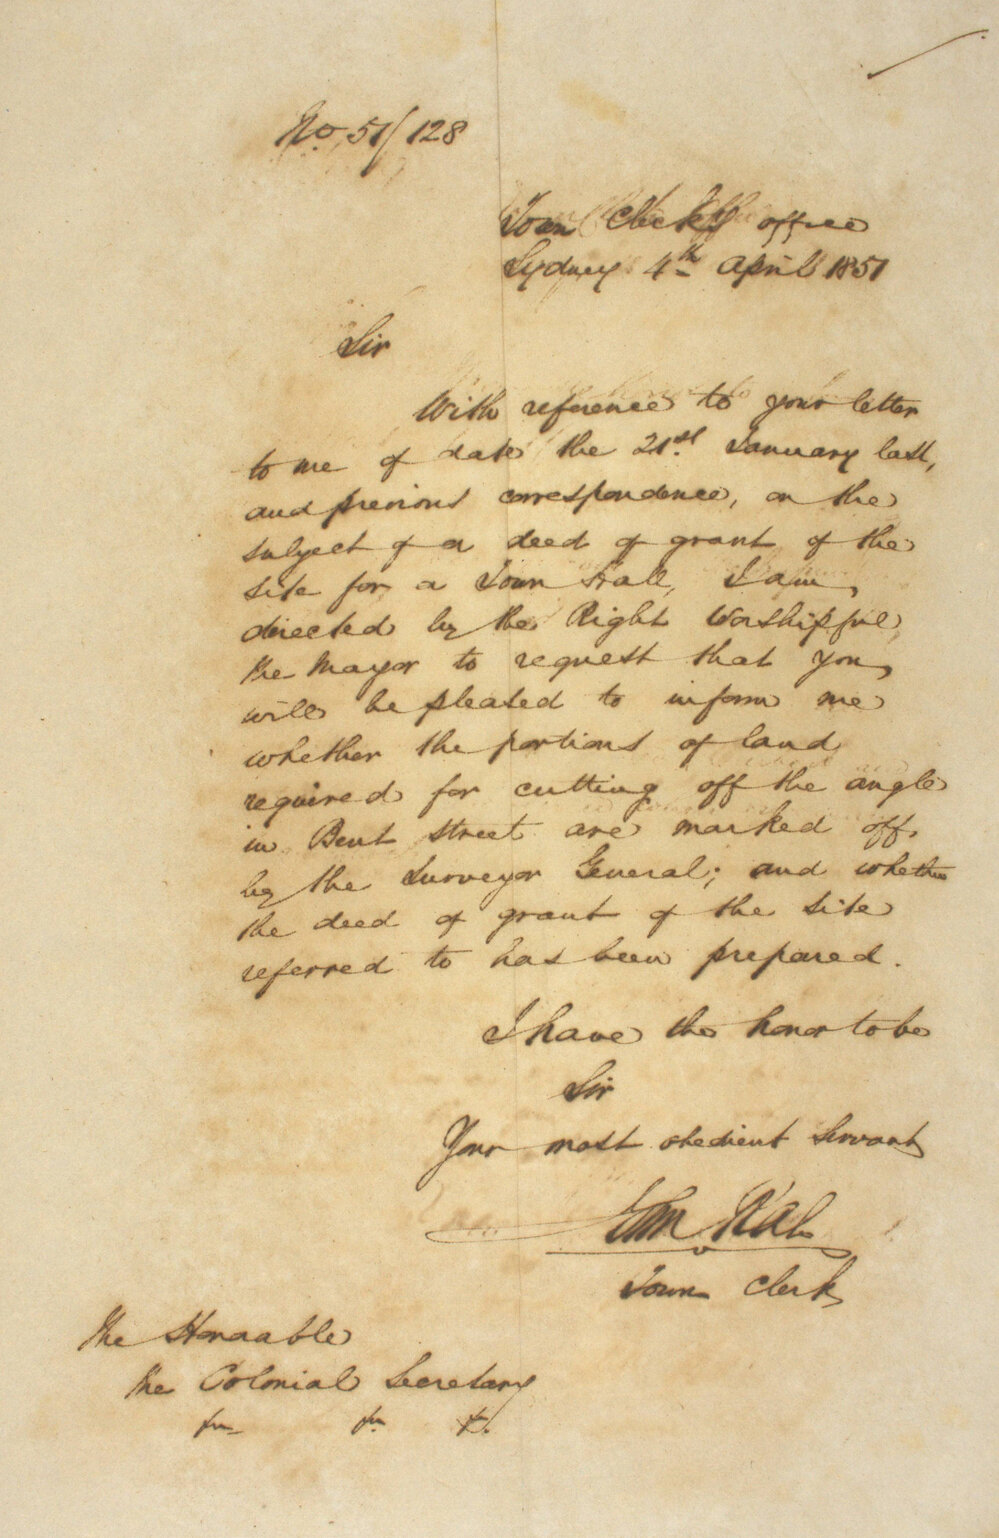 No. 51/128
Town Clerk's office
Sydney 4th April 1851
Sir
With reference to your letter
to me of date the 21st. January last,
and previous correspondence, on the
subject of a deed of grant of the
site for a Town Hall, I am,
directed by the Right Worshipful
the Mayor to request that you,
will be pleased to inform me
whether the portions of land
required for cutting off the angle
in Bent Street are marked off,
by the Surveyor General; and whether
the deed of grant of the site
referred to has been prepared.
I have the honor to be
Sir
Your most obedient Servant
Town Clerk
The Honorable
the Colonial Secretary